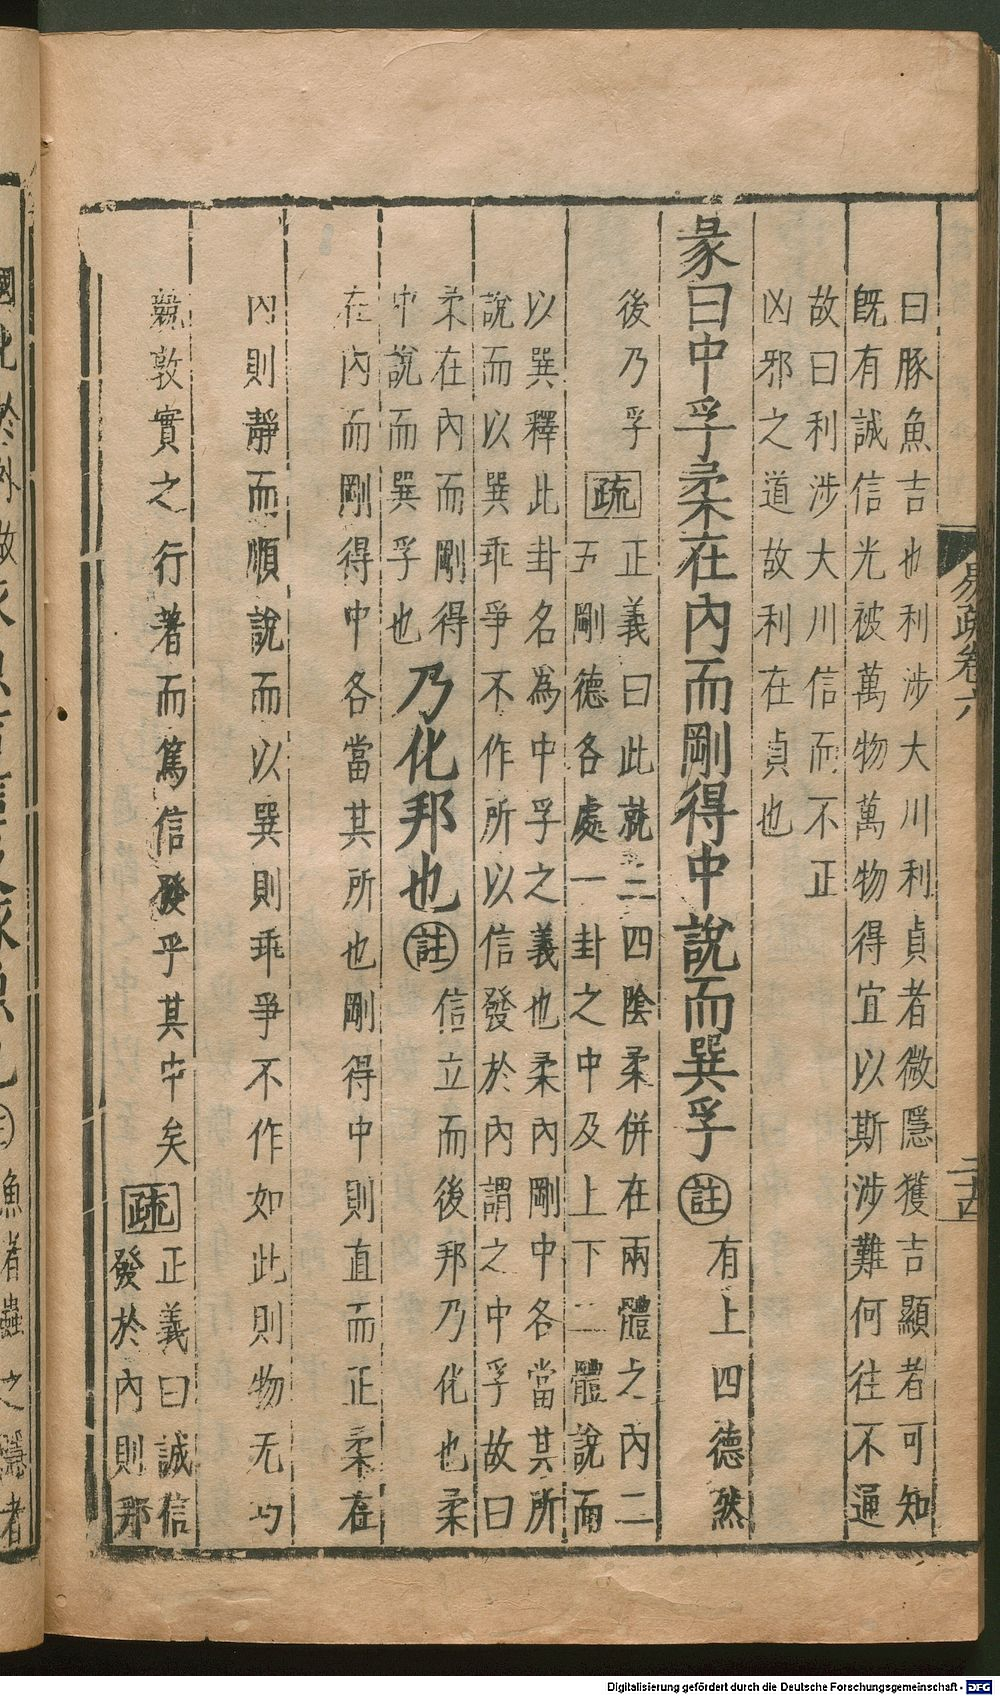 易疏卷六
二十四
曰豚魚吉也利涉大川利貞者微隱獲吉顯者可知
旣有誠信光被萬物萬物得宜以斯涉難何往不通
故曰利涉大川信而不正
凶邪之道故利在貞也
彖曰中孚柔在內而剛得中說而巽孚註有上四德然
後乃孚疏正義曰此就三四陰柔併在兩體之內二
五剛德各處一卦之中及上下二體說而
以巽釋此卦名爲中孚之義也柔內剛中各當其所
說而以巽乖爭不作所以信發於內謂之中孚故曰
柔在內而剛得
中說而巽孚也乃化邦也註信立而後邦乃化也柔
在內而剛得中各當其所也剛得中則直而正柔在
內則靜而順說而以巽則乖爭不作如此則物无巧
競敦實之行著而篤信發乎其中矣疏正義曰誠信
發於內則邪
魚者蟲之隱者
Digitalisierung gefördert durch die Deutsche Forschungsgemeinschaft - DFG